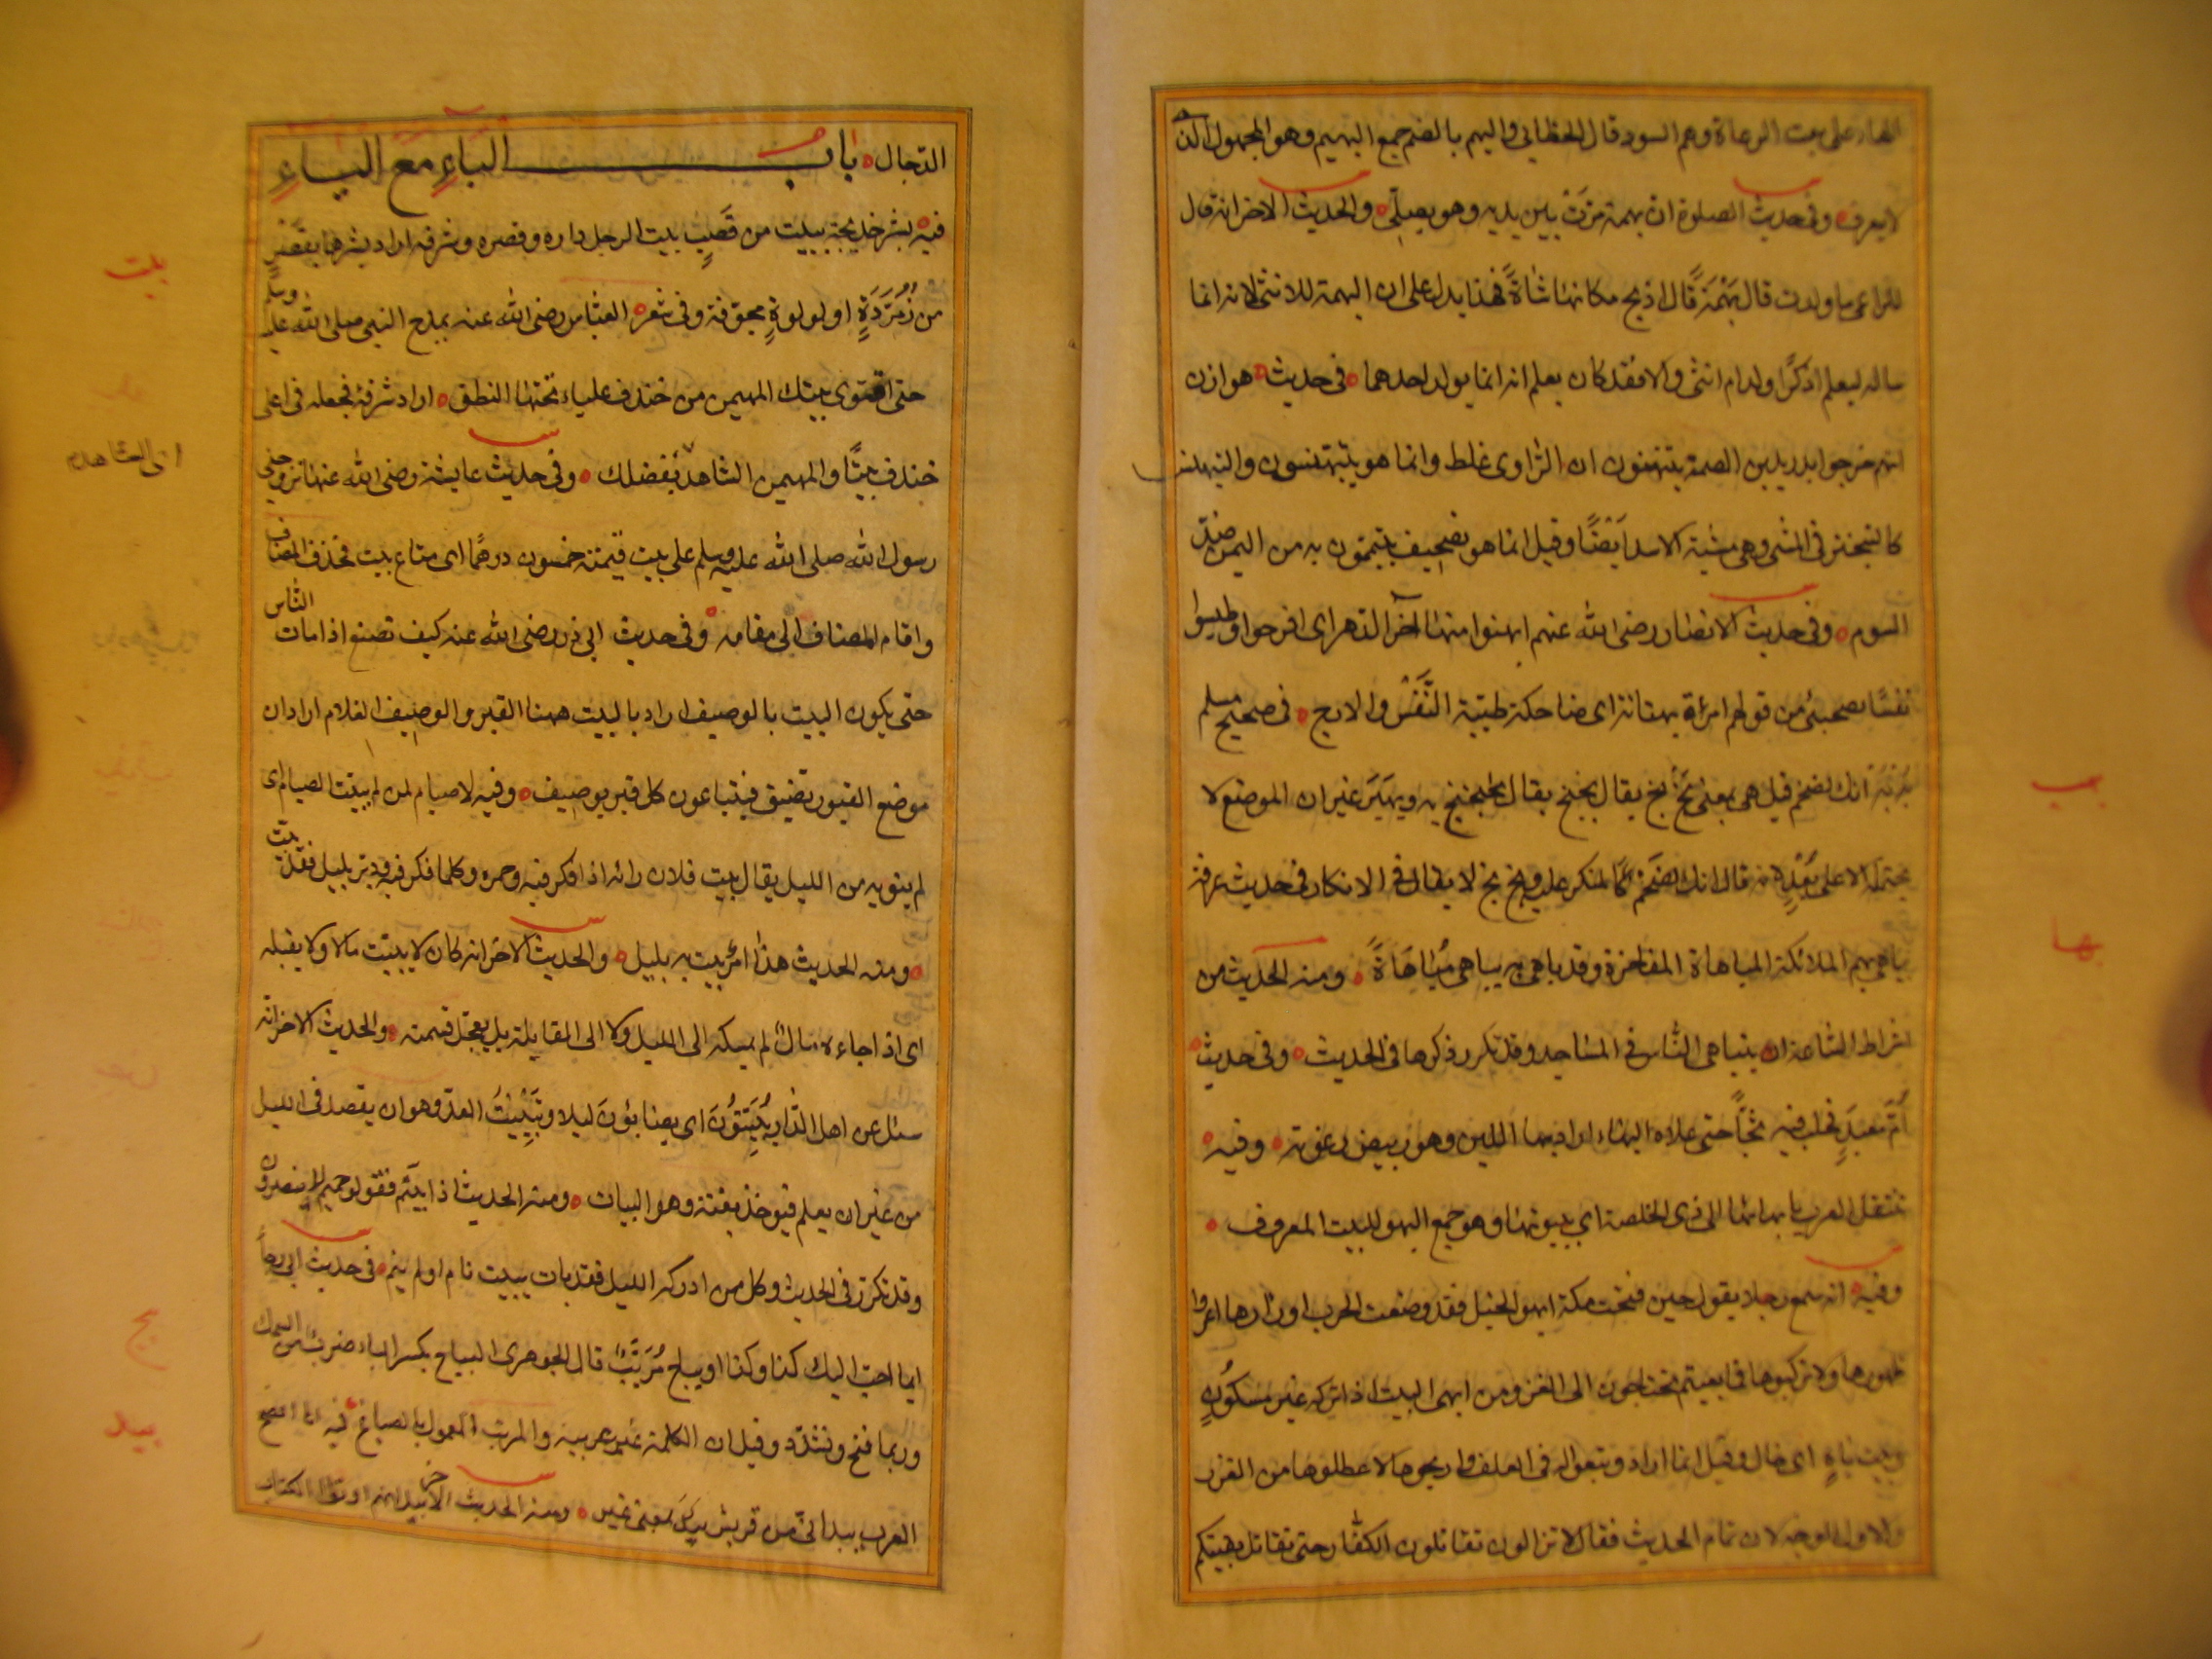 الهاء على نعت الرعاة وهم السود قال الخطابي والبهم بالضم جمع البهيم وهو المجهول الذي
لا يعرف وفي حديث الصلوة ان بهمة مرت بين يديه وهو يصلي والحديث الاخر انه قال
للراعي ما ولدت قال بهمة قال اذبح مكانها شاة فهذا يدل على ان البهمة للانثى لانه انما
ساله ليعلم اذكرا ولد ام انثى والا فقد كان يعلم انه انما يولد احدهما في حديث هوازن
انهم خرجوا بدريد بن الصمة يتبهنون ان الراوي غلط وانما هو يتبهنسون والتبهنس
كالتبختر في المشي وهي مشية الاسد ايضا وقيل انما هو تصحيف يتيمنون به من اليمن ضد
الشوم وفي حديث الانصار رضي الله عنهم ابهنوا منها اخر الدهر اي افرحوا وطيبوا
نفسا بصحبتي من قولهم امرأة بهنانة اي ضاحكة طيبة النفس والارج في صحيح مسلم
به به انك لضخم قيل هي بمعنى بخ بخ يقال بخبخ به وبهبه غير ان الموضع لا
يحتمله الا على بعد لانه قال انك لضخم كالمنكر عليه وبخ بخ لا يقال في الانكار في حديث عرفة
يباهي بهم الملائكة المباهاة المفاخرة وقد باهى به يباهي مباهاة ومنه الحديث من
اشراط الساعة ان يتباهى الناس في المساجد وقد تكرر ذكرها في الحديث وفي حديث
ام معبد فحلب فيه ثجا حتى علاه البهاء اراد بهاء اللبن وهو وبيص رغوته وفيه
تنتقل العرب بابهائها الى ذي الخلصة اي ببيوتها وهو جمع البهو للبيت المعروف
وفيه انه سمع رجلا يقول حين فتحت مكة ابهوا الخيل فقد وضعت الحرب اوزارها اي اعروا
ظهورها ولا تركبوها فما بقيتم تحتاجون الى الغزو من ابهى البيت اذا تركه غير مسكون
وبيت باه اي خال وقيل انما اراد وسعوا لها في العلف واريحوها لا عطلوها من الغزو
والاول الوجه لان تمام الحديث فقال لا تزالون تقاتلون الكفار حتى تقاتل بقيتكم
بهبه
بها
الدجال باب الباء مع الياء
فيه بشر خديجة ببيت من قصب بيت الرجل داره وقصره وشرفه اراد بشرها بقصر
من زمردة او لولوة مجوفة وفي شعر العباس رضي الله عنه يمدح النبي صلى الله عليه وسلم
حتى احتوى بيتك المهيمن من خندف علياء تحتها النطق اراد شرفه فجعله في اعلى
خندف بيتا والمهيمن الشاهد بفضلك وفي حديث عايشة رضي الله عنها تزوجني
رسول الله صلى الله عليه وسلم على بيت قيمته خمسون درهما اي متاع بيت فحذف المضاف
واقام المضاف الى مقامه وفي حديث ابي ذر رضي الله عنه كيف تصنع اذا مات الناس
حتى يكون البيت بالوصيف اراد بالبيت ههنا القبر والوصيف الغلام اراد ان
موضع القبور تضيق فيبتاعون كل قبر بوصيف وفيه لا صيام لمن لم يبيت الصيام اي
لم ينويه من الليل يقال بيت فلان رائه اذا فكر فيه وخمره وكلما فكر فيه ودبر بليل فقد بيت
ومنه الحديث هذا امر بيت بليل والحديث الاخر انه كان لا يبيت مالا ولا يقيله
اي اذا جاءه مال لم يمسكه الى الليل ولا الى القايلة بل يعجل قسمته والحديث الاخر انه
سئل عن اهل الدار يبيتون اي يصابون ليلا وتبييت العدو هو ان يقصد في الليل
من غير ان يعلم فيوخذ بغتة وهو البيات ومنه الحديث اذا بيتم فقولوا حم لا ينصرون
وقد تكرر في الحديث وكل من ادركه الليل فقد بات يبيت نام او لم ينم في حديث ابي رجا
ايما احب اليك كذا وكذا او بياح مربب قال الجوهري البياح بكسر الباء ضرب من السمك
وربما فتح وشدد وقيل ان الكلمة غير عربية والمربب المعمول بالصباغ فيه انا افصح
العرب بيد اني من قريش بيد بمعنى غير ومنه الحديث الاخر بيد انهم اوتوا الكتاب
بيت
اي الشاهد
بيح
بيد